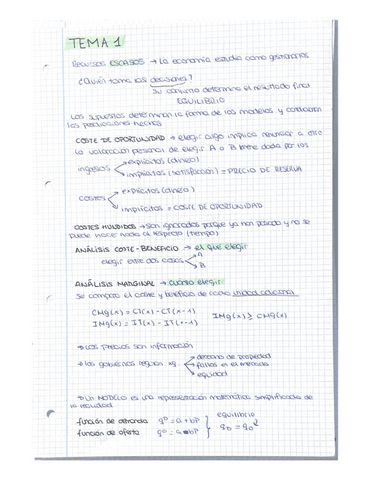 TEMA 1
Recursos ESCASOS → La economía estudia como gestionarlos
¿Quién toma las decisiones?
Su conjunto determina el resultado final
EQUILIBRIO
Los supuestos determinan la forma de los modelos y condicionan
las predicciones hechas
COSTE DE OPORTUNIDAD → elegir algo implica renunciar a otro
la valoración personal de elegir A o B viene dada por los
ingresos explícitos (dinero)
implícitos (satisfacción) = PRECIO DE RESERVA
costes explícitos (dinero)
implícitos = COSTE DE OPORTUNIDAD
COSTES HUNDIDOS → son ignorados porque ya han pasado y no se
puede hacer nada al respecto (tiempo)
ANÁLISIS COSTE-BENEFICIO → el que elegir
elegir entre dos cosas A
B
ANÁLISIS MARGINAL → cuánto elegir
Se compara el coste y beneficio de cada unidad adicional
CMg(x) = CT(x) - CT(x-1)
IMg(x) = IT(x) - IT(x-1) IMg(x) ≥ CMg(x)
→ Los precios son información
→ los gobiernos regulan xq derecho de propiedad
fallos en el mercado
equidad
→ Un MODELO es una representación matemática simplificada de
la realidad
función de demanda q^D = a + bP equilibrio
función de oferta